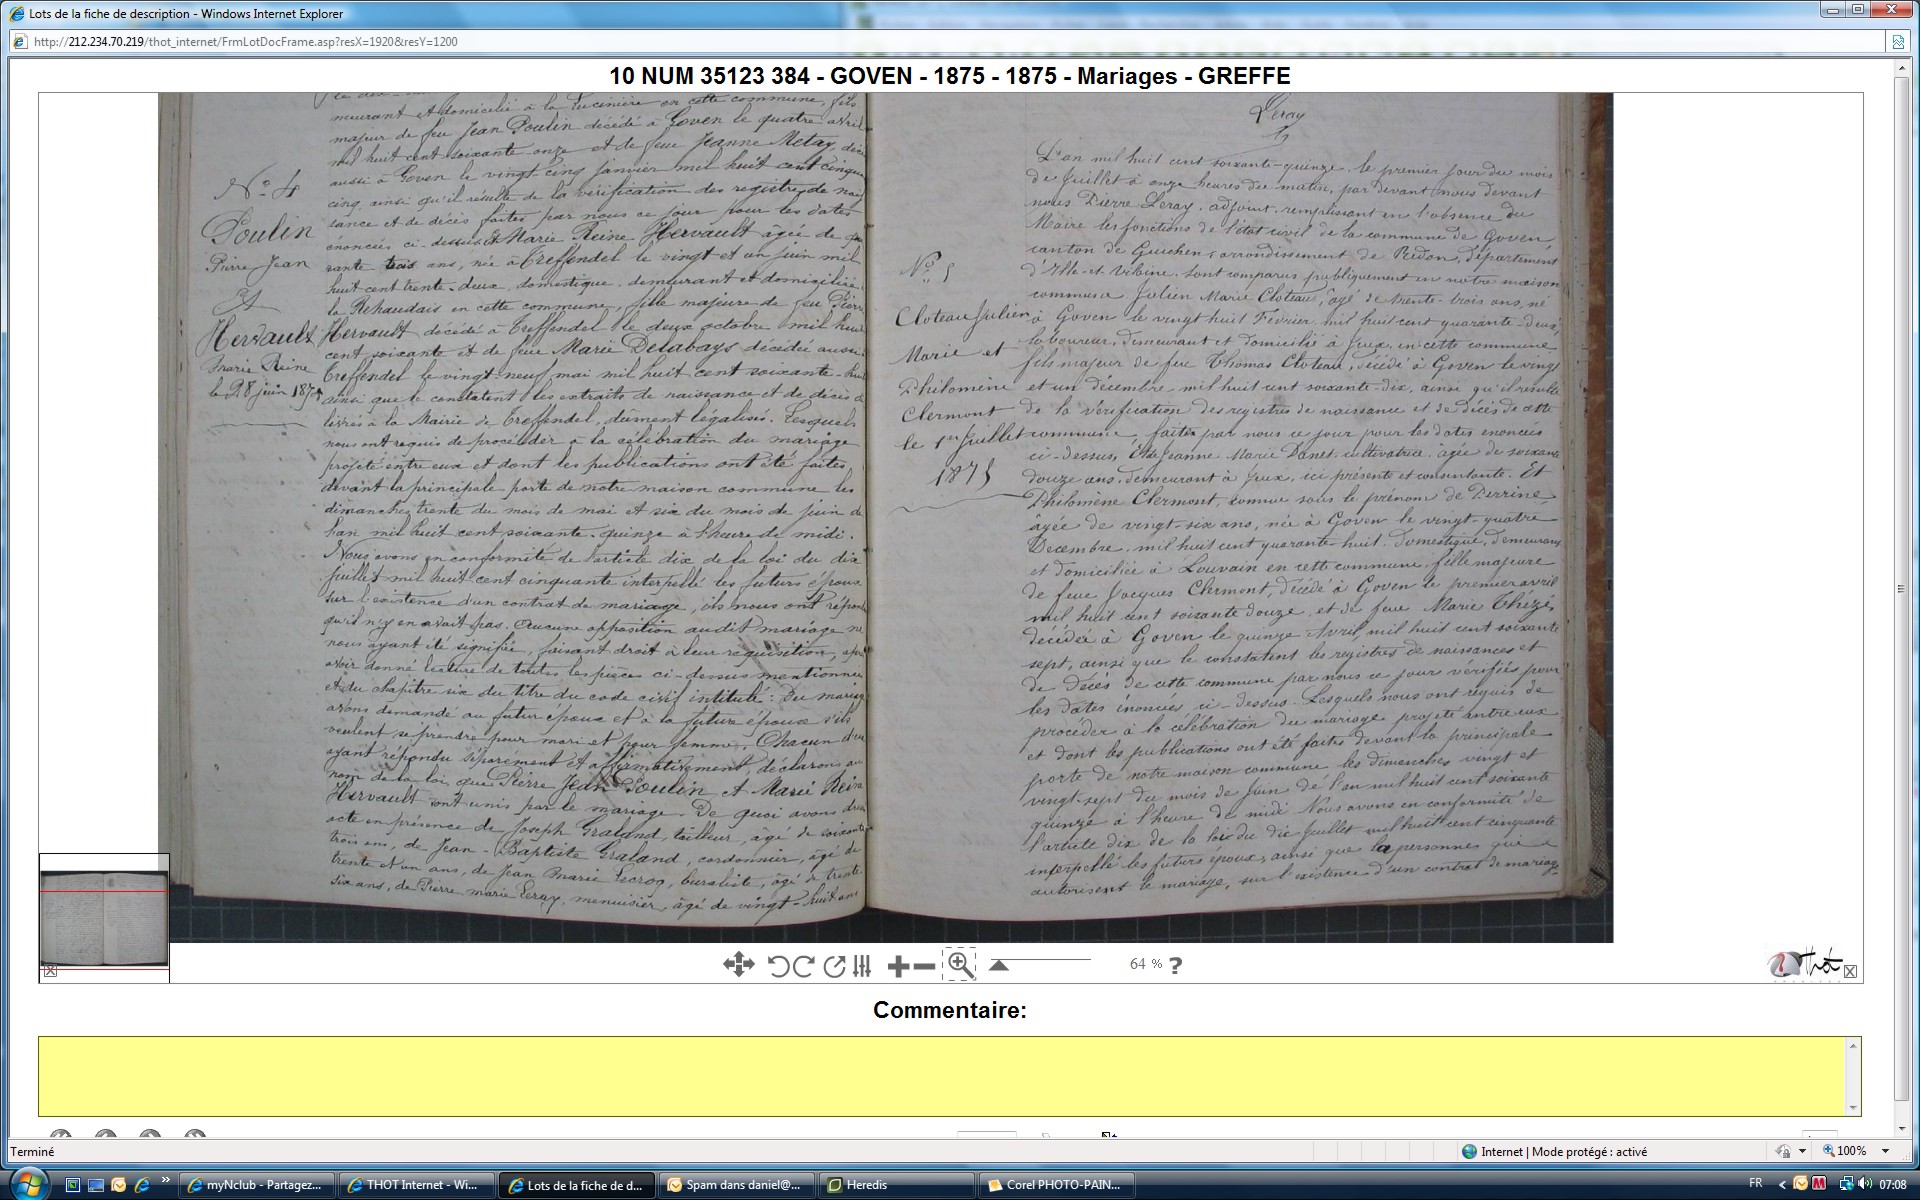 Lots de la fiche de description - Windows Internet Explorer
http://212.234.70.219/thot_internet/FrmLotDocFrame.asp?resX=1920&resY=1200
10 NUM 35123 384 - GOVEN - 1875 - 1875 - Mariages - GREFFE
meurant et domicilié à la en cette commune, fils
majeur de feu Jean Poulin décédé à Goven le quatre avril
mil huit cent soixante onze et de feue Jeanne Metay, décé
aussi à Goven le vingt-cinq janvier mil huit cent cinqua
cinq, ainsi qu'il résulte de la vérification des registres de nais
sance et de décès faites par nous ce jour pour les dates
énoncés ci-dessus Et Marie Reine Hervault âgée de qua
rante trois ans, née à Treffendel le vingt et un juin mil
huit cent trente-deux, domestique, demeurant et domiciliée
la Rehaudais en cette commune, fille majeure de feu Pierre
Hervault décédé à Treffendel le deux octobre mil huit
cent soixante et de feue Marie Delabays décédée aussi
Treffendel le vingt-neuf mai mil huit cent soixante-huit
ainsi que le constatent les extraits de naissance et de décès dé
livrés à la Mairie de Treffendel, dûment légalisés. Lesquels
nous ont requis de procéder à la célébration du mariage
projeté entre eux et dont les publications ont été faites
devant la principale porte de notre maison commune les
dimanches trente du mois de mai et six du mois de juin de
l'an mil huit cent soixante-quinze à l'heure de midi.
Nous avons en conformité de l'article dix de la loi du dix
juillet mil huit cent cinquante interpellé les futurs époux
sur l'existence d'un contrat de mariage, ils nous ont répon
qu'il n'y en avait pas. Aucune opposition audit mariage ne
nous ayant été signifiée, faisant droit à leur réquisition, aprè
avoir donné lecture de toutes les pièces ci-dessus mentionnée
et du chapitre six du titre du code civil intitulé: Du mariage
avons demandé au futur époux et à la future épouse s'ils
veulent se prendre pour mari et pour femme, Chacun d'eux
ayant répondu séparément et affirmativement, déclarons au
nom de la loi que Pierre Jean Poulin et Marie Reine
Hervault sont unis par le mariage. De quoi avons dressé
acte en présence de Joseph Graland, tailleur, âgé de soixante
trois ans, de Jean-Baptiste Graland, cordonnier, âgé de
trente et un ans, de Jean Marie Lecroq, buraliste, âgé de trente
six ans, de Pierre marie Leray, menuisier, âgé de vingt-huit ans
No 4
Poulin
Pierre Jean
Et
Hervault
Marie Reine
le 28 juin 1875
Leray
L'an mil huit cent soixante-quinze, le premier jour du mois
de Juillet à onze heures du matin, par devant nous devant
nous Pierre Leray, adjoint, remplissant en l'absence du
Maire les fonctions de l'état civil de la commune de Goven
canton de Guichen, arrondissement de Redon, département
d'Ille-et-Vilaine, sont comparus publiquement en notre maison
commune Julien Marie Cloteau, âgé de trente-trois ans, né
à Goven le vingt huit Février mil huit cent quarante-deux,
laboureur, demeurant et domicilié à Jeux, en cette commune
fils majeur de feu Thomas Cloteau, décédé à Goven le vingt
et un décembre mil huit cent soixante-dix, ainsi qu'il résulte
de la vérification des registres de naissance et de décès de cette
commune, faites par nous ce jour pour les dates énoncées
ci-dessus, Et de Jeanne Marie Danet, cultivatrice, âgée de soixante
douze ans, demeurant à Jeux, ici présente et consentante. Et
Philomène Clermont, connue sous le prénom de Perrine
âgée de vingt-six ans, née à Goven le vingt-quatre
Décembre mil huit cent quarante huit, domestique, demeurant
et domiciliée à Louvain en cette commune, fille majeure
de feue Jacques Clermont, décédé à Goven le premier avril
mil huit cent soixante douze et de feue Marie Thézé,
décédée à Goven le quinze Avril mil huit cent soixante
sept, ainsi que le constatent les registres de naissances et
de décès de cette commune par nous ce jour vérifiés pour
les dates énoncées ci-dessus. Lesquels nous ont requis de
procéder à la célébration du mariage projeté entre eux
et dont les publications ont été faites devant la principale
porte de notre maison commune les dimanches vingt et
vingt-sept du mois de Juin de l'an mil huit cent soixante
quinze à l'heure de midi Nous avons en conformité de
l'article dix de la loi du dix Juillet mil huit cent cinquante
interpellé les futurs époux, ainsi que la personnes qui
autorisent le mariage, sur l'existence d'un contrat de mariage
No 5
Cloteau Julien
Marie et
Philomène
Clermont
le 1er Juillet
1875
64 % ?
Thot
Commentaire:
Terminé
Internet | Mode protégé : activé
100%
myNclub - Partagez...
THOT Internet - Wi...
Lots de la fiche de d...
Spam dans daniel@...
Heredis
Corel PHOTO-PAIN...
FR
07:08